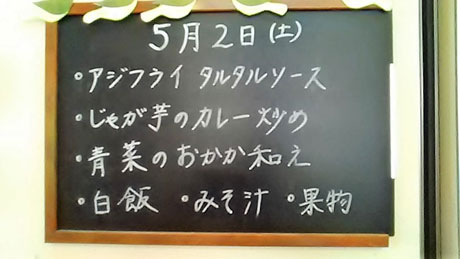 5月2日(土)
・アジフライ タルタルソース
・じゃが芋のカレー炒め
・青菜のおかか和え
・白飯 ・みそ汁 ・果物